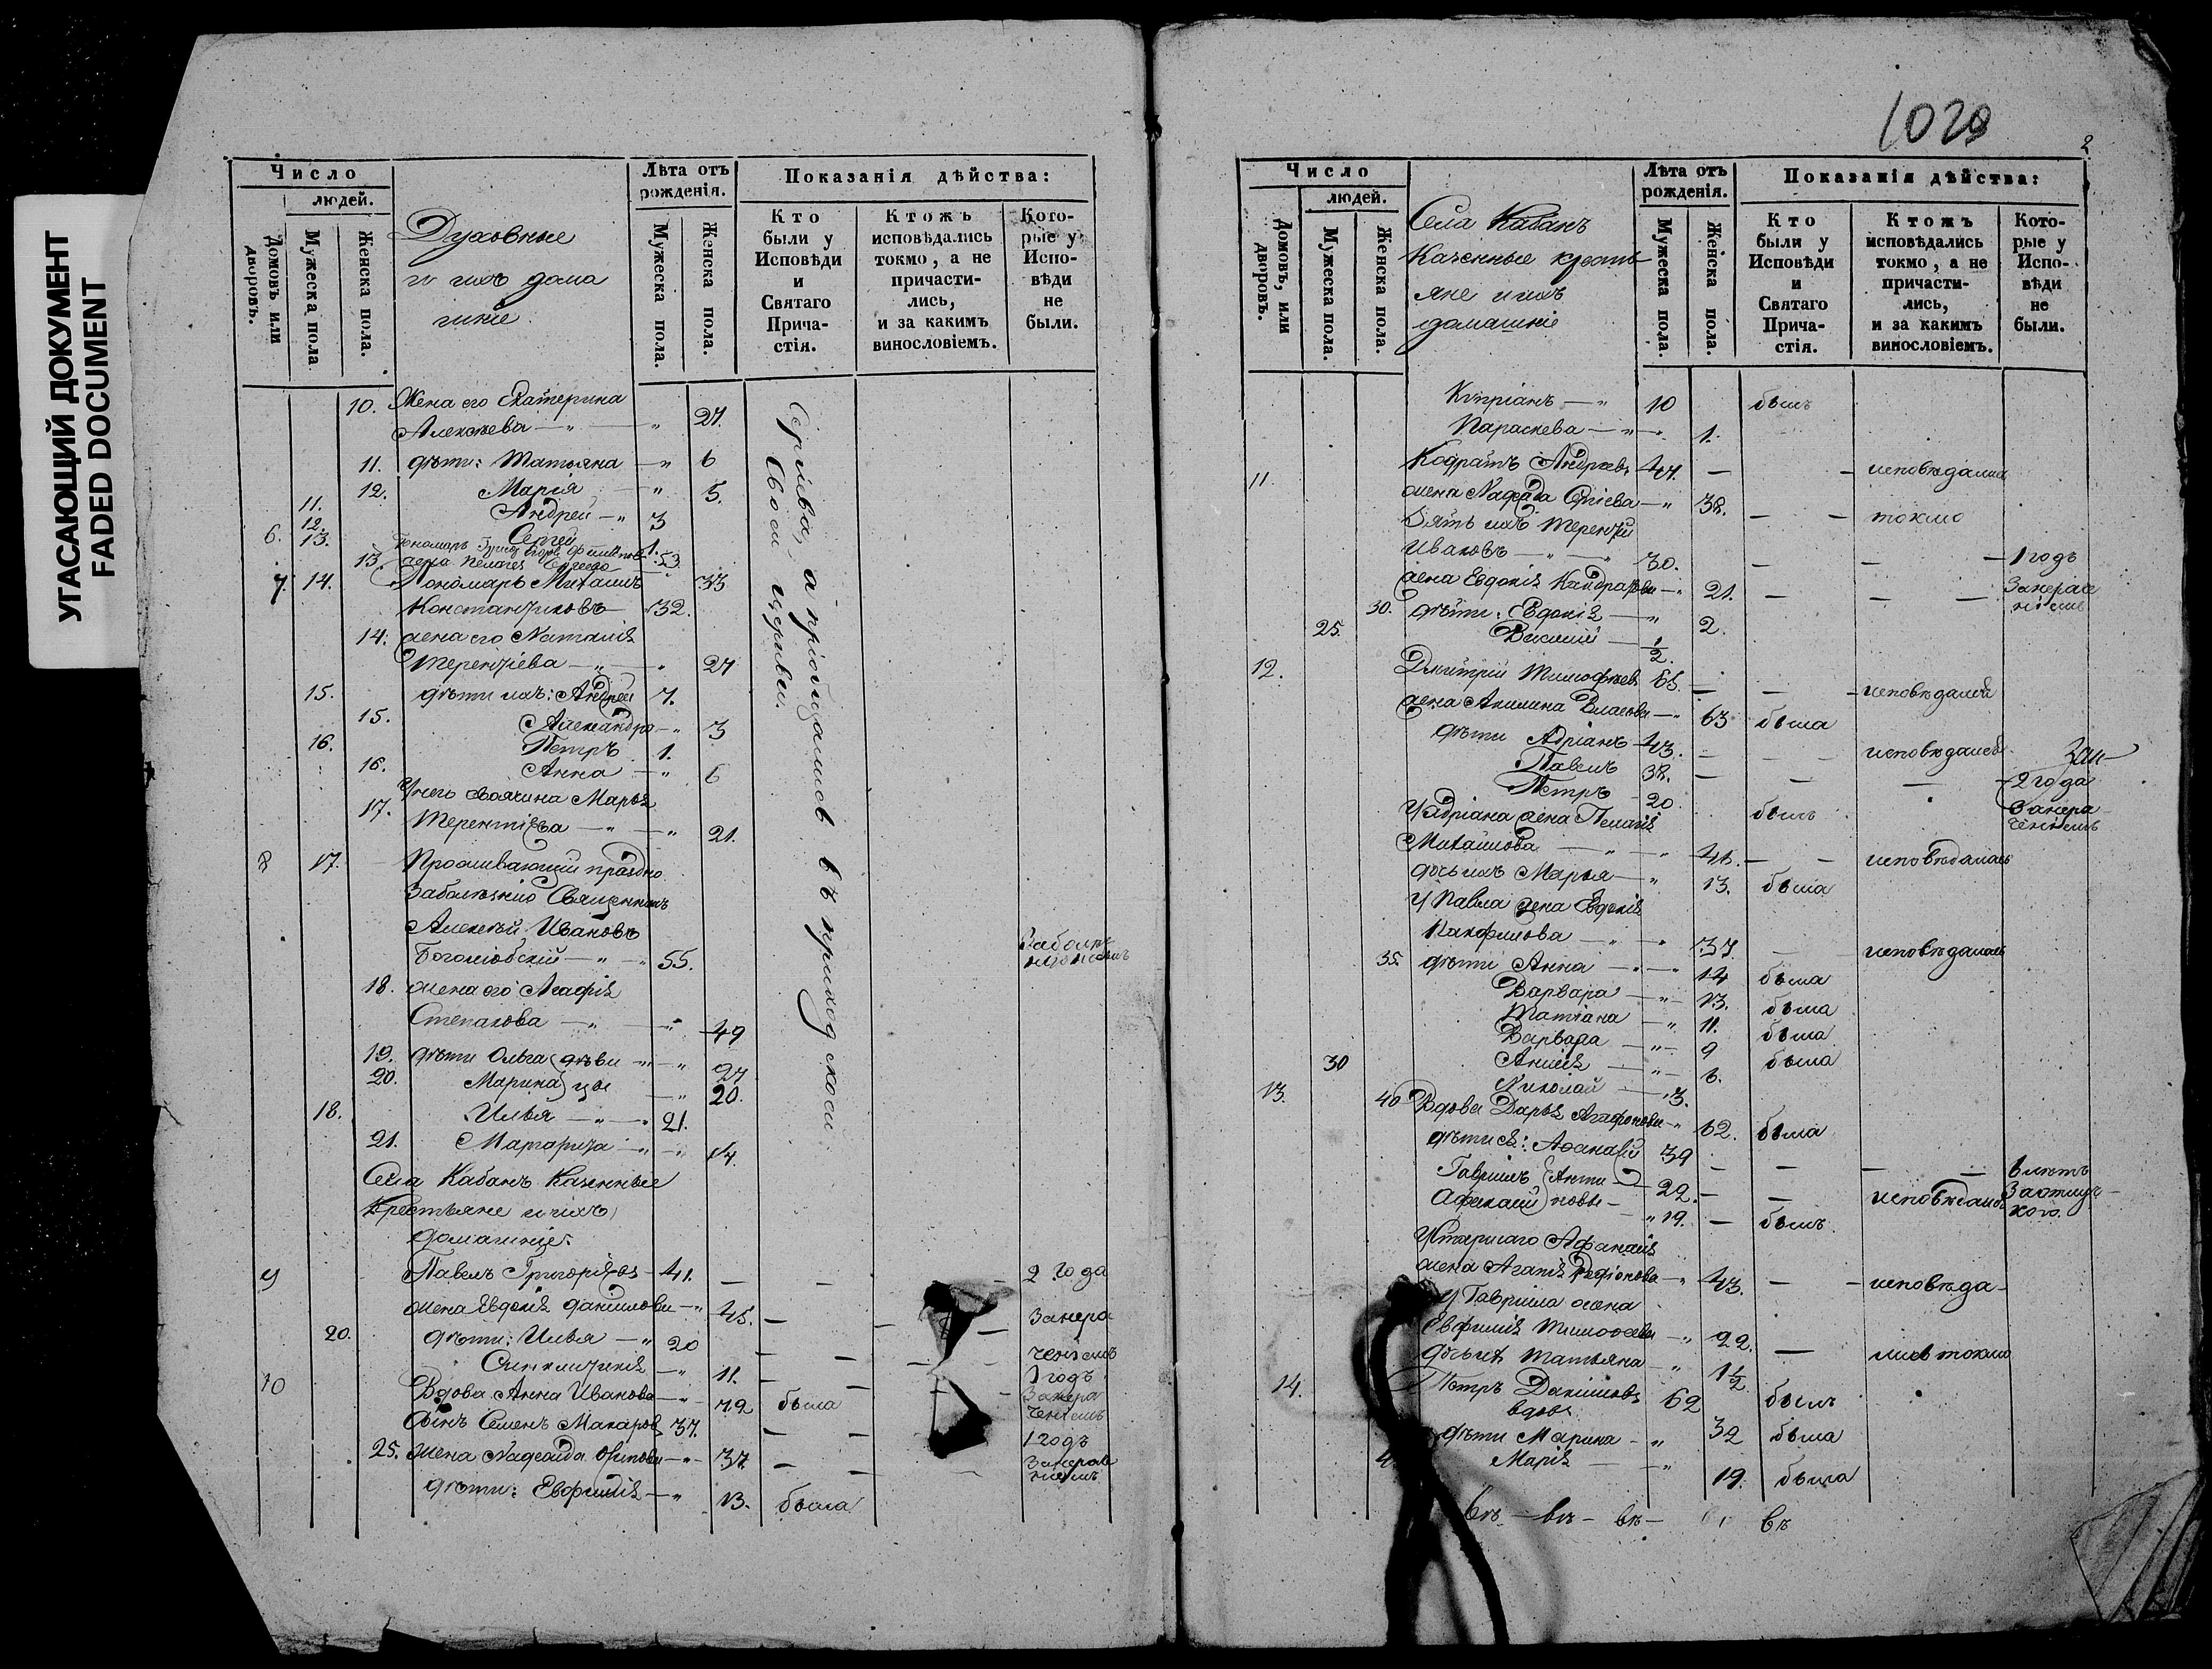 УГАСАЮЩИЙ ДОКУМЕНТ
FADED DOCUMENT
Число
людей.
Домовъ или дворовъ.
Мужеска пола
Женска пола.
Духовные
и ихъ дома
шніе
Лѣта отъ рожденія.
Мужеска пола.
Женска пола.
Показанія дѣйства:
Кто были у Исповѣди и Святаго Причастія.
Ктожъ исповѣдались токмо, а не причастились, и за какимъ винословіемъ.
Которые у Исповѣди не были.
10. Жена его Екатерина
Алексѣева — " — " 27.
11. дѣти: Татьяна — " 6
12. Марія — " 5.
11. Андрей — " 3
12. Сергей 1.
6. 13. Пономарь 53
13. жена Пелагея 
7. 14. Пономарь Михаилъ 33
Константиновъ — 32.
14. жена его Наталія
Терентіева — " — " 27
15. дѣти ихъ: Андрей 7.
15. Александра — " 3
16. Петръ 1.
16. Анна — " 6
У него своячина Марья
17. Терентіева — " — " 21.
8 17. Проживающій праздно
За болѣзнію Священникъ
Алексѣй Ивановъ
Боголюбскій — " — " 55.
18. жена его Агафія
Степанова — " — " 49
19. дѣти Ольга дѣви — " — " 27
20. Марина цы — " 20.
18. Илья — " — " 21.
21. Маргарита — " — " 14.
Села Кабанъ Казенные
Крестьяне и ихъ
домашніе:
9 Павелъ Григорьевъ — 41. — — — 2 года
жена Евдокія Данилова — " 45. — — — За нера
20. дѣти: Илья — " 20 — — — ченіемъ
Синклитикія — " 11. — — — 1 годъ
10 Вдова Анна Иванова — " 72 была За нера
ченіемъ
сынъ Семенъ Макаровъ 37. — — 1 годъ
25. жена Надежда — " 37. — — За нера
ніемъ
дѣти: Евфимія — " 13. была
въ своей церкви.
а пріобщались въ приходской
1029
2
Число
людей.
Домовъ, или дворовъ.
Мужеска пола.
Женска пола.
Села Кабанъ
Казенные кресть
яне и ихъ
домашніе
Лѣта отъ рожденія.
Мужеска пола.
Женска пола.
Показанія дѣйства:
Кто были у Исповѣди и Святаго Причастія.
Ктожъ исповѣдались токмо, а не причастились, и за какимъ винословіемъ.
Которые у Исповѣди не были.
Кипріанъ — " 10 былъ
Параскева — " — 1.
11 Кодратъ Андреевъ 47. — — исповѣдались
жена — " 38. — — токмо
Зять ихъ Терентій
Ивановъ — " — 30. — — — 1 годъ
жена Евдокія Кандратова — " 21. — — — За нера
ніемъ
30. дѣти: Евдокія — " 2.
25. Василій — 1/2.
12. Дмитрій Тимофѣевъ 68. — — — исповѣдался
жена Акилина Власова — " 63 была
дѣти Адріанъ 43. — — исповѣдался За
Павелъ 38. — — — 2 года
Петръ 20. былъ За нера
ченіемъ
У Адріана жена Пелагія
Михайлова — " — " 41. — — исповѣдалась
дочь ихъ Марья — " 13. была
У Павла жена Евдокія
Панфилова — " — " 37. — исповѣдалась
35. дѣти Анна — " — " 14 была
Варвара — " — 13. была
Татіана — " 11. была
Варвара — " — 9 была
Анисія — " — 6.
30 Николай — " 3.
13. 40 Вдова Дарья Агафонова — " 62. была
дѣти ея: Афанасій 39 — — — — 6 лѣтъ
Гавріилъ Анти — 22. — — исповѣдался За отлуч
Афанасій повы — " 19. — былъ кою.
У старшаго Афанасія
жена Агапія Родіонова — " 43. — — исповѣда-
У Гавріила жена
Евфимія Тимофеева — " 22. — лись токмо
дочь ихъ Татьяна — " 1 1/2
14. Петръ Даниловъ 62 былъ
вдовъ
дѣти Марина — " 32 была
Марія — " 19. была